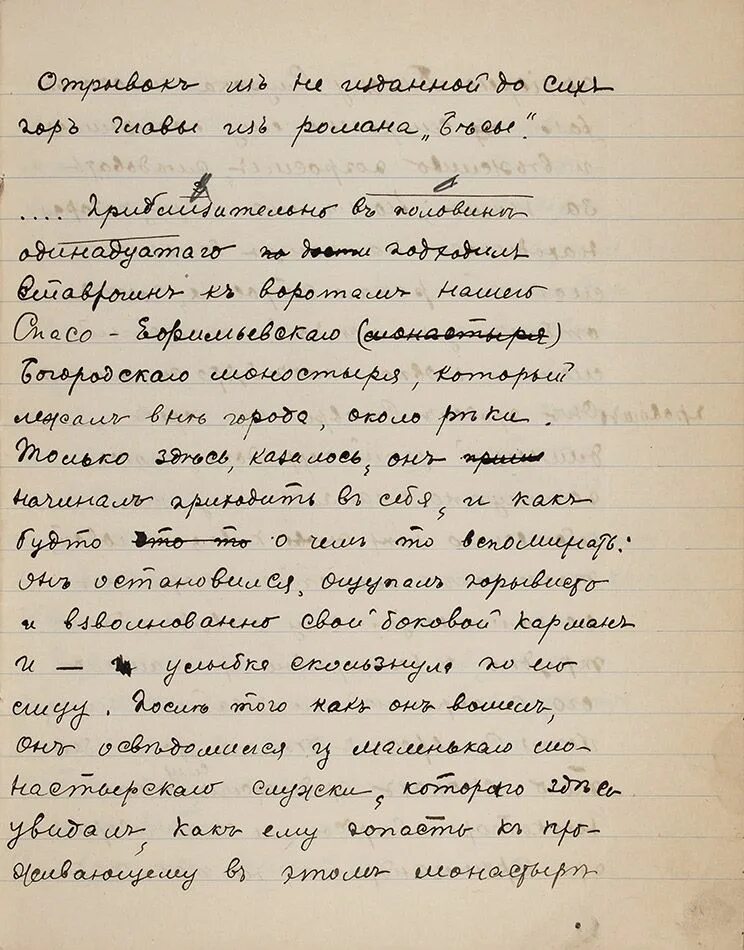 Отрывокъ изъ не изданной до сихъ
поръ главы изъ романа „Бѣсы".
.... Приблизительно въ половинѣ
одинадцатаго по подходилъ
Ставрогинъ къ воротамъ нашего
Спасо-Ефимьевскаго (монастыря)
Богородскаго моностыря, который
лежалъ внѣ города, около рѣки.
Только здѣсь, казалось, онъ приш
начиналъ приходить въ себя, и какъ
будто что то о чемъ то вспоминать:
онъ остановился, ощупалъ порывисто
и взволнованно свой боковой карманъ
и — улыбка скользнула по его
лицу. Послѣ того какъ онъ вошелъ,
онъ освѣдомился у маленькаго мо-
настырскаго служки, котораго здѣсь
увидалъ, какъ ему попасть къ про-
живающему въ этомъ монастырѣ